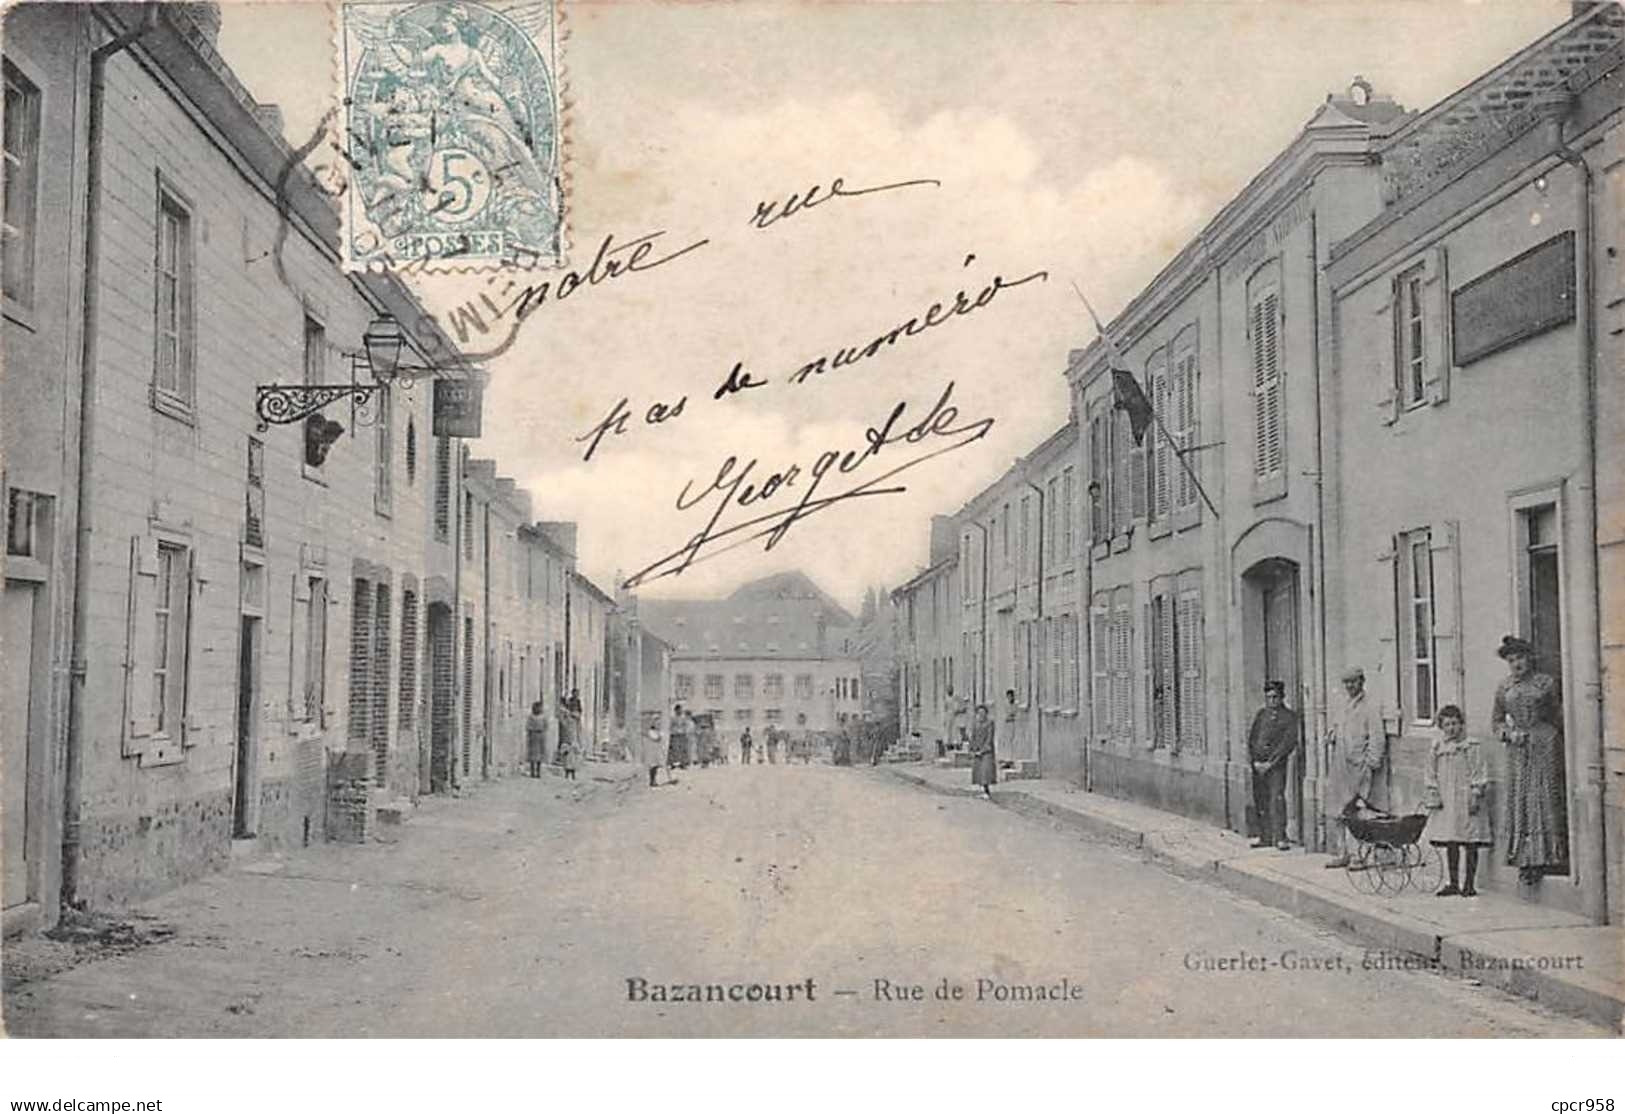 5c
POSTES
GIVET
REIMS
notre rue
pas de numéro
Georgette
Guerlet-Gavet, éditeur, Bazancourt
Bazancourt — Rue de Pomacle
www.delcampe.net
cpcr958